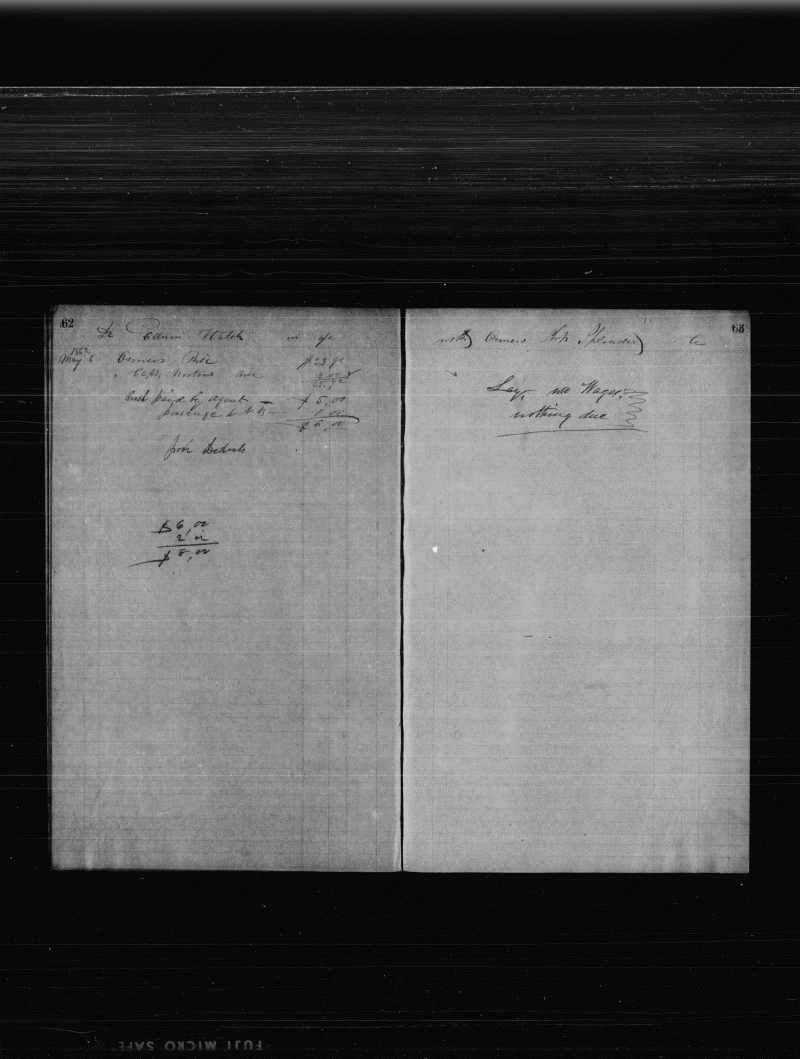 62
Dr Edwin Walch in a/c
1862
May 6 Owners Bill $23.92
" Capt Nortons Bill 2.00
25.92
Cash paid by agent — $5,00
passage to N B — 1 00
$6,00
from Deducts
$6,00
2 00
$8,00
63
with Owners Ship Splendid Cr
Lay, no Wages,
nothing due
FUJI MICRO SAFE